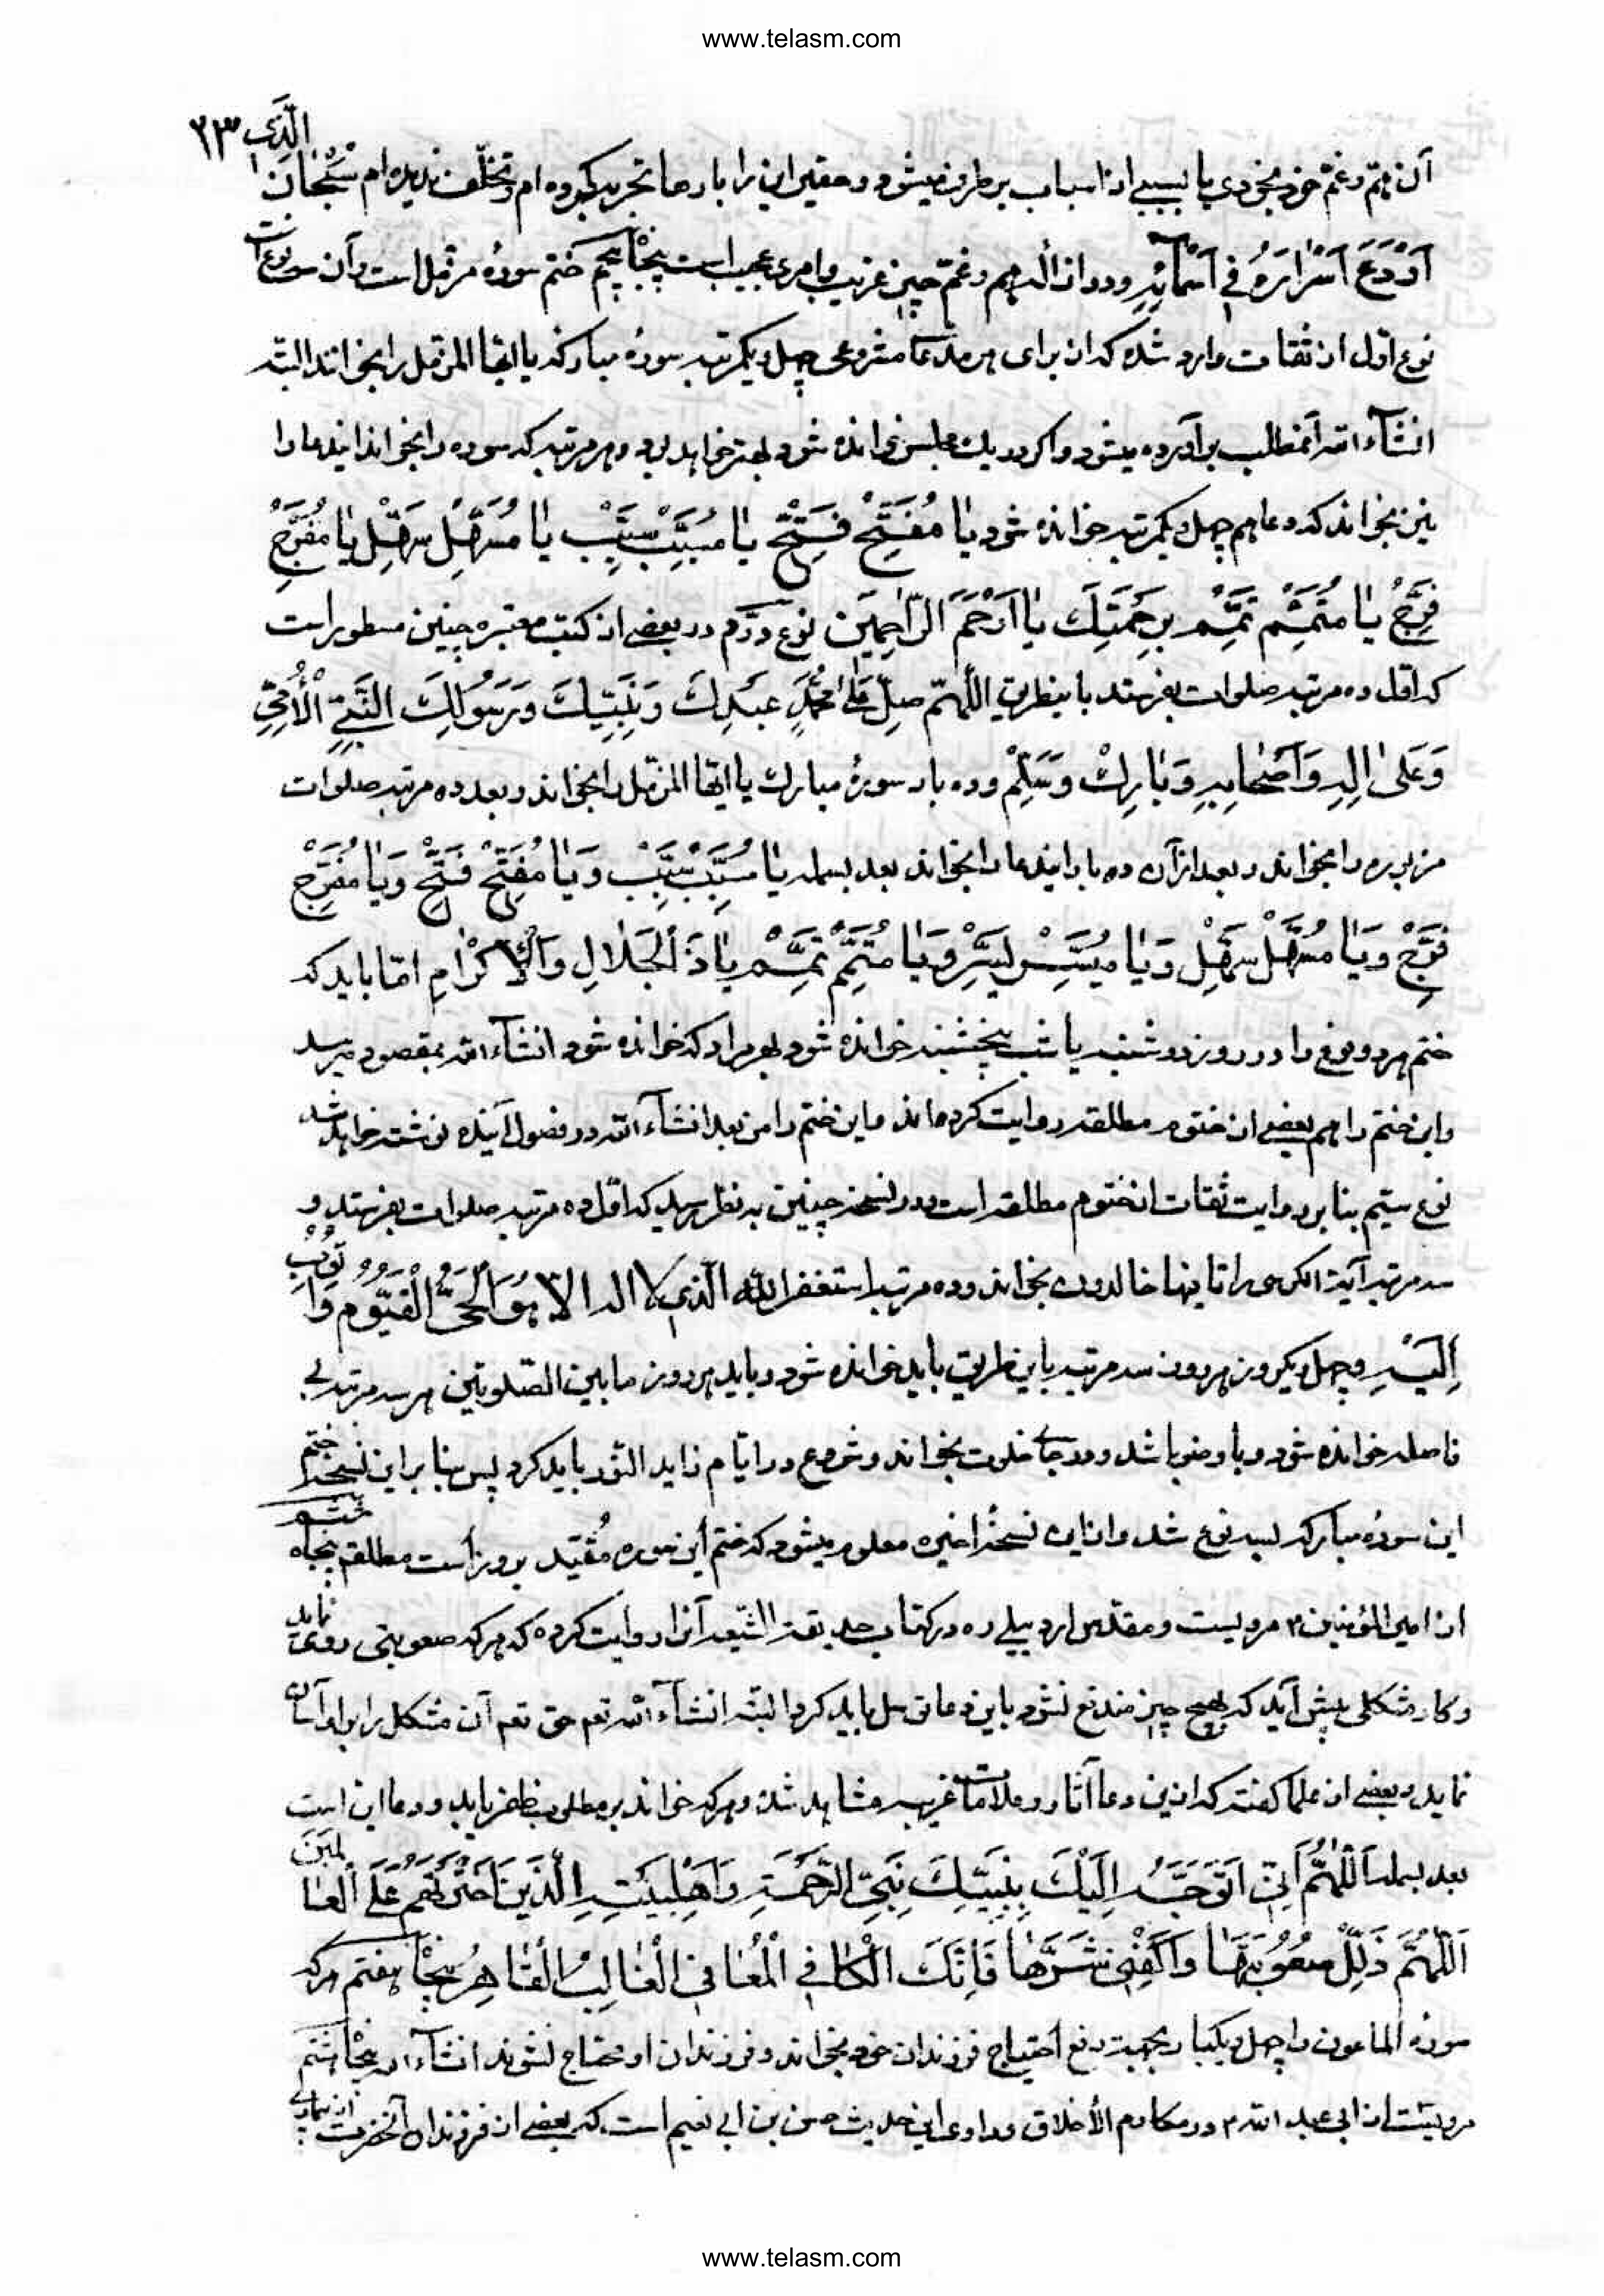 www.telasm.com
۲۳
آن هم و غم خود بخودی یا بسببی از اسباب برطرف میشود و حقیر این را بارها تجربه کرده‌ام و تخلف ندیده‌ام سُبْحٰانَ الَّذی
اَوْدَعَ اَسْرٰارَهُ فی اَسْمٰآئِهِ و در ازالهٔ هم و غم چیز غریب و امری عجیب است پنجاه پنجم ختم سورهٔ مزمل است و آن سه نوع است
نوع اول از ثقات وارد شده که از برای هر مدعا مشروعی چهل و یکمرتبه سوره مبارکه یا ایها المزمل را بخوانند البته
انشآء الله آنمطلب برآورده میشود و اگر در یک مجلس خوانده شود بهتر خواهد بود و هر مرتبه که سوره را بخواند ایندعا را
نیز بخواند که دعا هم چهل و یکمرتبه خوانده شود یٰا مُفَتِّحْ فَتِّحْ یٰا مُسَبِّبْ سَبِّبْ یٰا مُسَهِّلْ سَهِّلْ یٰا مُفَرِّجْ
فَرِّجْ یٰا مُتَمِّمْ تَمِّمْ بِرَحْمَتِكَ یٰا اَرْحَمَ الرّٰاحِمینَ نوع دوم در بعضی از کتب معتبره چنین مسطور است
که اول ده مرتبه صلوات بفرستد باینطریق اللّهُمّ صلّ علیٰ محمّدٍ عَبْدِكَ وَنَبِیِّكَ وَرَسُولِكَ النَّبِیِّ الْاُمِّیِّ
وَعَلیٰ اٰلِهِ وَاَصْحٰابِهِ وَبٰارِكْ وَسَلِّمْ و ده بار سورهٔ مبارک یا ایها المزمل را بخواند و بعد ده مرتبه صلوات
مزبوره را بخواند و بعد از آن ده بار ایندعا را بخواند بعد بسمله یٰا مُسَبِّبْ سَبِّبْ وَیٰا مُفَتِّحْ فَتِّحْ وَیٰا مُفَرِّجْ
فَرِّجْ وَیٰا مُسَهِّلْ سَهِّلْ وَیٰا مُیَسِّرْ یَسِّرْ وَیٰا مُتَمِّمْ تَمِّمْ یٰا ذَا الْجَلٰالِ وَالْاِکْرٰامِ اما باید که
ختم هر دو نوع را در روز دوشنبه یا شب پنجشنبه خوانده شود بهر مراد که خوانده شود انشآء الله بمقصود میرسد
و این ختم را هم بعضی از ختوم مطلقه روایت کرده‌اند و این ختم را من بعد انشآء الله در فصول آینده نوشته خواهد شد
نوع سیم بنا بر روایت ثقات از ختوم مطلقه است و در نسخه چنین به نظر رسید که اول ده مرتبه صلوات بفرستد و
سه مرتبه آیة الکرسی را تا فیها خالدون بخواند و ده مرتبه استغفر الله الّذی لا اله الا هُوَ الْحَیُّ الْقَیُّومُ وَاَتُوبُ
اِلَیْهِ و چهل و یکروز هر روز سه مرتبه باین طریق باید خوانده شود و باید هر روز ما بین الصلوتین هر سه مرتبه بی
فاصله خوانده شود و با وضو باشد و در جای خلوت بخواند و شروع در ایام زاید النور باید کرد پس بنا بر این نسخه ختم
این سورهٔ مبارکه بسه نوع شد و از این نسخهٔ اخیره معلوم میشود که ختم این سوره مُقیّد بروز است مطلقه پنجاه ششم
از امیر المؤمنین ع مرویست و مقدس اردبیلی ره در کتاب حدیقة الشیعه آنرا روایت کرده که هر که صعوبتی روی نماید
و کار مشکلی پیش آید که بهیچ چیز مندفع نشود باین دعا توسل باید کرد البته انشآء الله تعم حق تعم آن مشکل را بر او آسان
نماید و بعضی از علما گفته که از این دعا آثار و علامات غریبه مشاهده شده و هر که خواند بر مطلوب ظفر یابد و دعا این است
بعد بسمله اَللّٰهُمَّ اِنّی اَتَوَجَّهُ اِلَیْكَ بِنَبِیِّكَ نَبِیِّ الرَّحْمَةِ وَاَهْلِبَیْتِهِ الَّذینَ اخْتَرْتَهُمْ عَلَی الْعٰالَمینَ
اَللّٰهُمَّ ذَلِّلْ صُعُوبَتَهٰا وَاکْفِنی شَرَّهٰا فَاِنَّكَ الْکٰافی الْمُعٰافی الْغٰالِبُ الْقٰاهِرُ پنجاه هفتم هر که
سوره الماعون را چهل و یکبار بجهت رفع احتیاج فرزندان خود بخواند و فرزندان او محتاج نشوند انشآء الله پنجاه هشتم
مرویست از ابی عبد الله ع در مکارم الأخلاق و راوی این حدیث حسن بن ابی نعیم است که بعضی از فرزندان آنحضرت
www.telasm.com